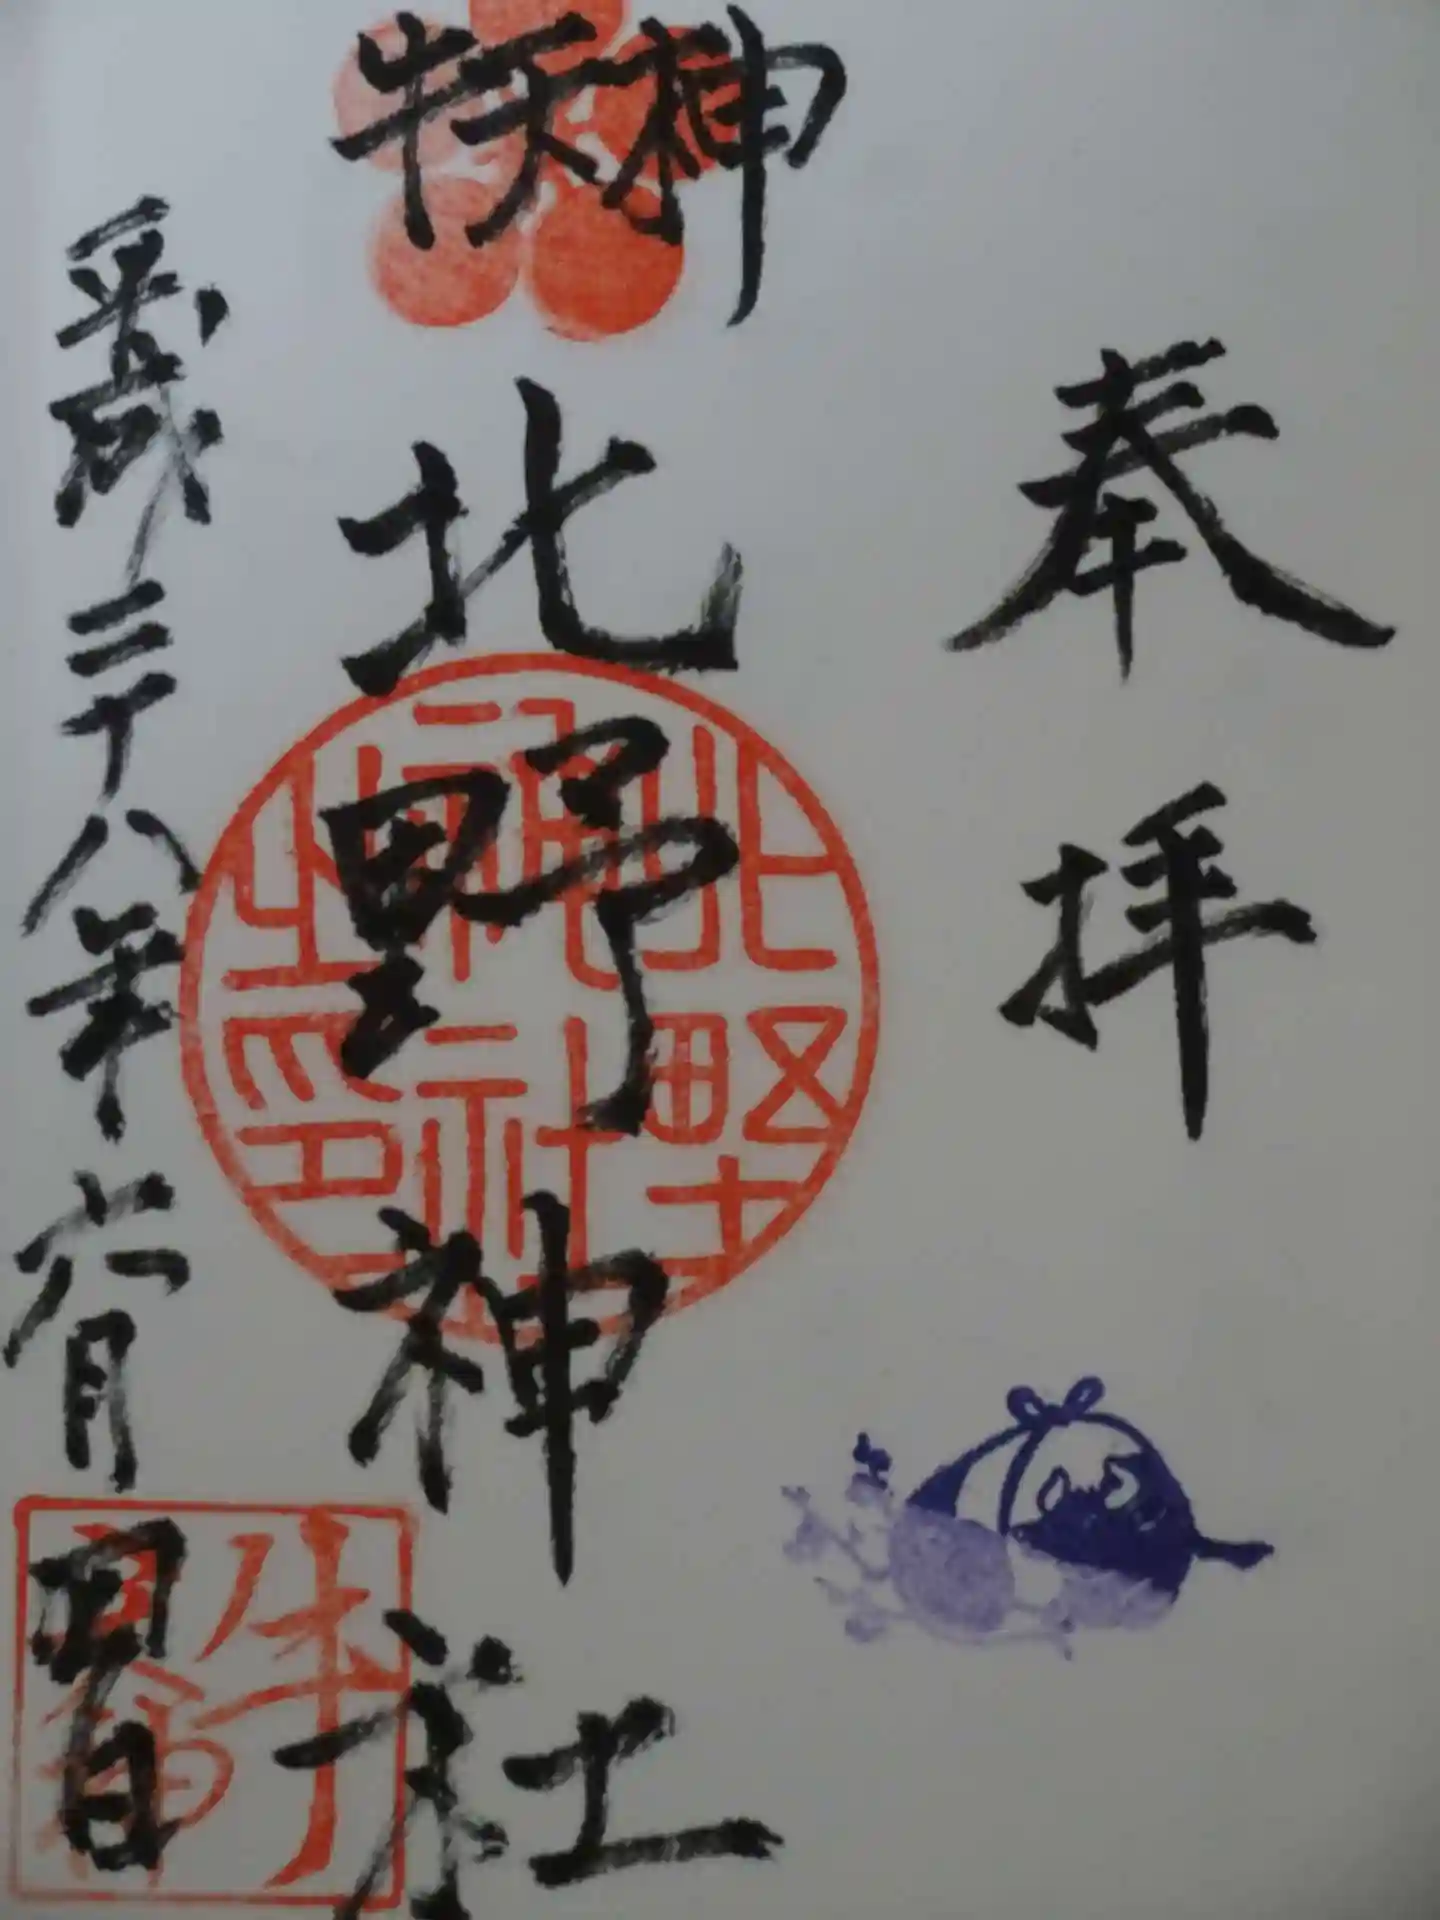 奉拝
牛天神
北野神社
平成二十八年六月日
北野
神社
之印
牛